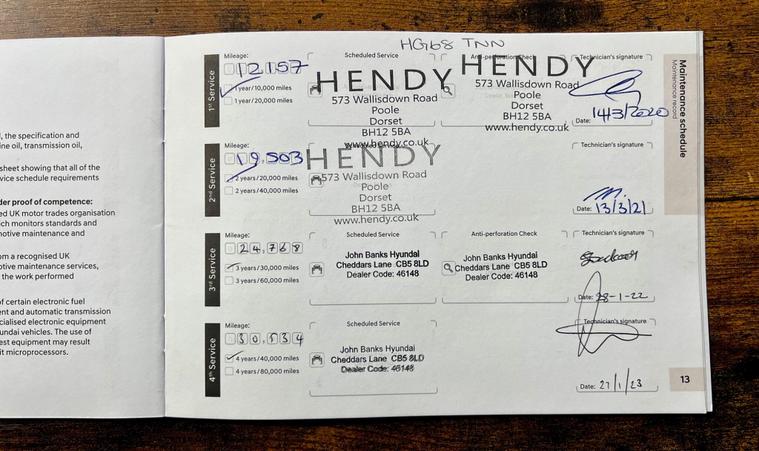 HG68 TNN
, the specification and
ine oil, transmission oil,
sheet showing that all of the
vice schedule requirements
der proof of competence:
ed UK motor trades organisation
ch monitors standards and
motive maintenance and
om a recognised UK
otive maintenance services,
the work performed
of certain electronic fuel
ent and automatic transmission
cialised electronic equipment
undai vehicles. The use of
est equipment may result
it microprocessors.
Maintenance schedule
Maintenance record
1st Service
Mileage:
12,157
1 year/10,000 miles
1 year/20,000 miles
Scheduled Service
HENDY
573 Wallisdown Road
Poole
Dorset
BH12 5BA
www.hendy.co.uk
Anti-perforation Check
HENDY
573 Wallisdown Road
Poole
Dorset
BH12 5BA
www.hendy.co.uk
Technician's signature
Date: 14/3/2020
2nd Service
Mileage:
19,503
2 years/20,000 miles
2 years/40,000 miles
HENDY
573 Wallisdown Road
Poole
Dorset
BH12 5BA
www.hendy.co.uk
Technician's signature
Date: 13/3/21
3rd Service
Mileage:
24,768
3 years/30,000 miles
3 years/60,000 miles
Scheduled Service
John Banks Hyundai
Cheddars Lane CB5 8LD
Dealer Code: 46148
Anti-perforation Check
John Banks Hyundai
Cheddars Lane CB5 8LD
Dealer Code: 46148
Technician's signature
Date: 28-1-22
4th Service
Mileage:
30,534
4 years/40,000 miles
4 years/80,000 miles
Scheduled Service
John Banks Hyundai
Cheddars Lane CB5 8LD
Dealer Code: 46148
Technician's signature
Date: 27/1/23
13